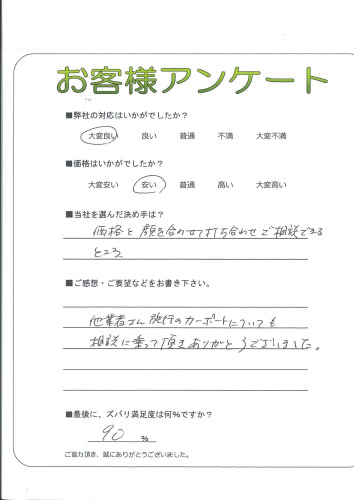 お客様アンケート
■弊社の対応はいかがでしたか?
大変良い 良い 普通 不満 大変不満
■価格はいかがでしたか?
大変安い 安い 普通 高い 大変高い
■当社を選んだ決め手は?
価格と顔を合わせて打ち合わせご相談できる
ところ
■ご感想・ご要望などをお書き下さい。
他業者さん施行のカーポートについても
相談に乗って頂きありがとうございました。
■最後に、ズバリ満足度は何%ですか?
90 %
ご協力頂き、誠にありがとうございました。